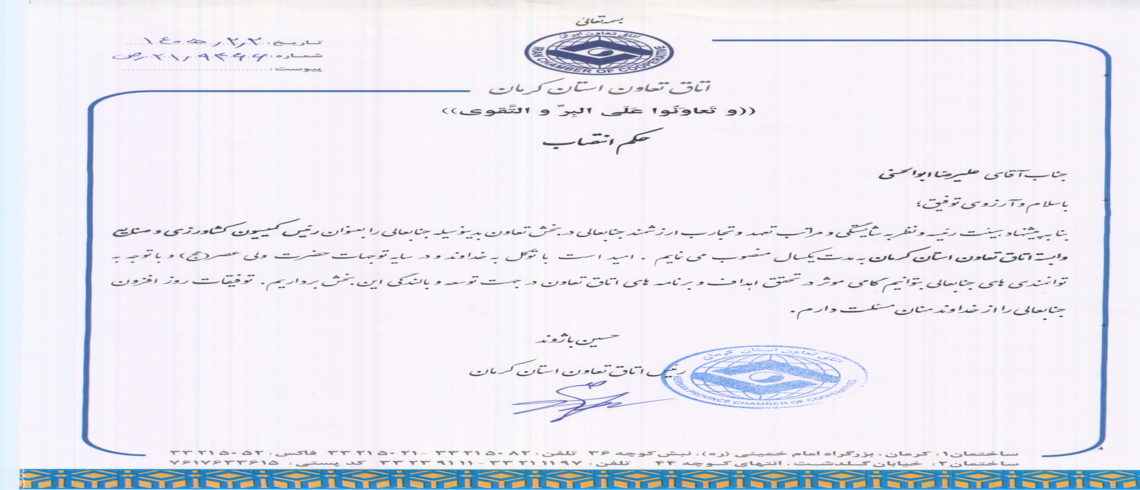 بسمه تعالی
تاریخ: ۱۴۰۵/۲/۲
شماره:
پیوست:
اتاق تعاون ایران
IRAN CHAMBER OF COOPERATIVE
اتاق تعاون استان کرمان
((و تَعاوَنُوا عَلَی البِرّ و التَّقوی))
حکم انتصاب
جناب آقای علیرضا ابوالحسنی
باسلام و آرزوی توفیق؛
بنا به پیشنهاد هیئت رئیسه و نظر به شایستگی و مراتب تعهد و تجارب ارزشمند جنابعالی در بخش تعاون بدینوسیله جنابعالی را بعنوان رئیس کمیسیون کشاورزی و صنایع
وابسته اتاق تعاون استان کرمان به مدت یکسال منصوب می نمایم . امید است با توکل به خداوند و در سایه توجهات حضرت ولی عصر(عج) و با توجه به
توانمندی های جنابعالی بتوانیم گامی موثر در تحقق اهداف و برنامه های اتاق تعاون در جهت توسعه و بالندگی این بخش برداریم. توفیقات روز افزون
جنابعالی را از خداوند منان مسئلت دارم.
حسین باژوند
رئیس اتاق تعاون استان کرمان
اتاق تعاون استان کرمان
KERMAN PROVINCE CHAMBER OF COOPERATIVES
ساختمان۱: کرمان، بزرگراه امام خمینی (ره)، نبش کوچه ۳۶ تلفن: ۳۳۲۱۵۰۸۲ - ۳۳۲۱۵۰۲۱ فاکس: ۳۳۲۱۵۰۵۲
ساختمان۲: خیابان گلدشت، انتهای کوچه ۳۳ تلفن: ۳۳۲۱۱۱۹۷ کد پستی: ۷۶۱۷۶۳۳۶۱۵